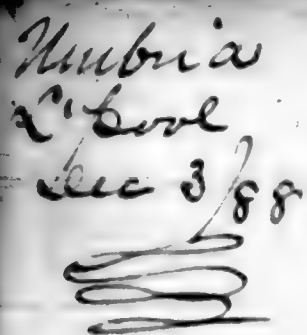 Umbria
L'pool
Dec 3/88